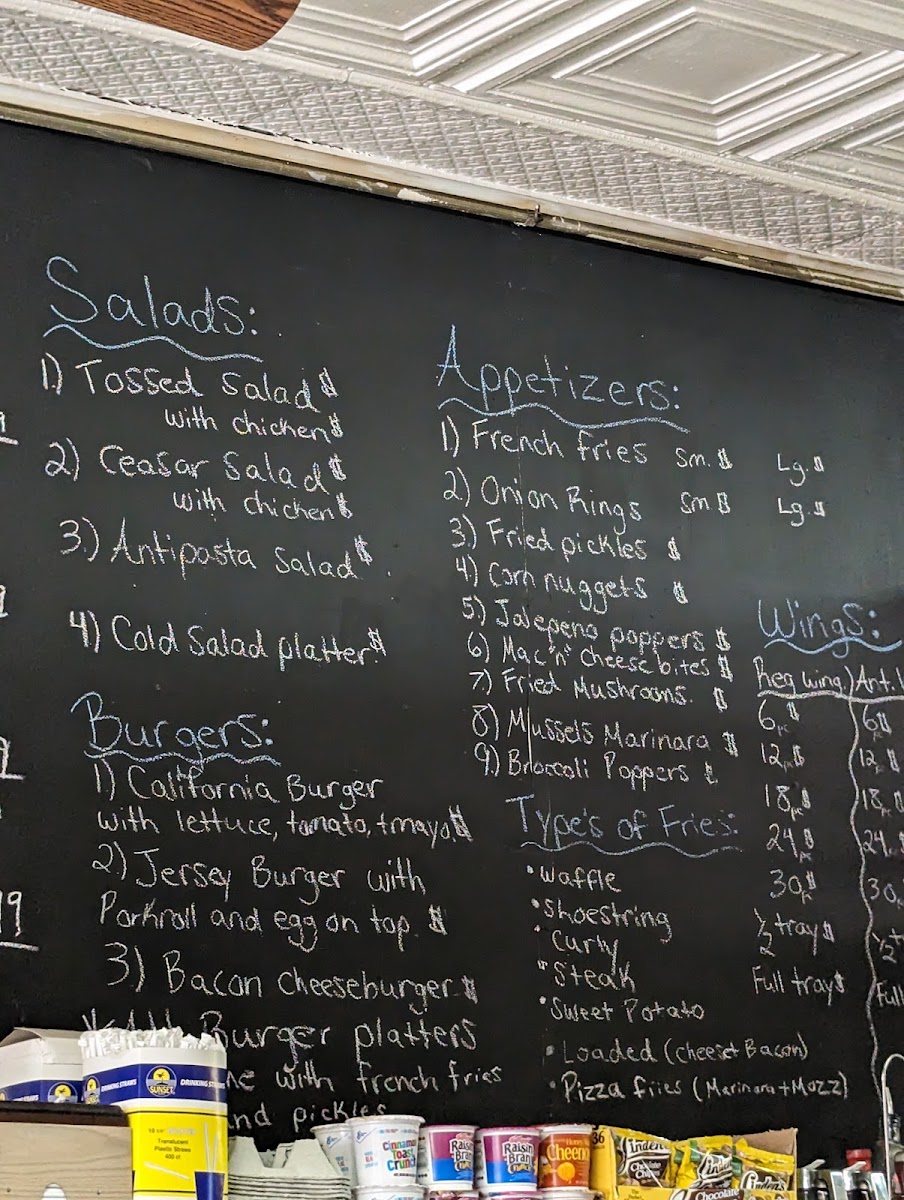 Salads:
1) Tossed Salad $
with chicken $
2) Ceasar Salad $
with chicken $
3.) Antipasta Salad $
4) Cold Salad platter $
Burgers:
1) California Burger
with lettuce, tomato, + mayo $
2) Jersey Burger with
Porkroll and egg on top. $
3) Bacon Cheeseburger $
* All Burger platters
with french fries
and pickles
Appetizers:
1) French fries Sm. $ Lg. $
2) Onion Rings Sm $ Lg. $
3) Fried pickles $
4) Corn nuggets $
5) Jalepeno poppers $
6) Mac "n" cheese bites $
7) Fried Mushrooms. $
8) Mussels Marinara $
9) Broccoli Poppers $
Type's of Fries:
• Waffle
• Shoestring
• Curly
• Steak
• Sweet Potato
• Loaded (cheese + Bacon)
• Pizza fries (Marinara + Mozz)
Wings:
Reg wing)
6pc $
12pc $
18pc $
24pc $
30pc $
1/2 tray $
Full tray $
Ant.
6pc $
12pc $
18pc
24pc
30pc
1/2
Full
99
DRINKING STRAWS
SUNSET
DRINKING STRAWS
Translucent
Plastic Straws
400 ct
Cinnamon
Toast
Crunch
Raisin
Bran
CRUNCH
Raisin
Bran
CRUNCH
Honey Nut
Cheerios
36
Linden's
Chocolate
Chip
Linden's
Chocolate